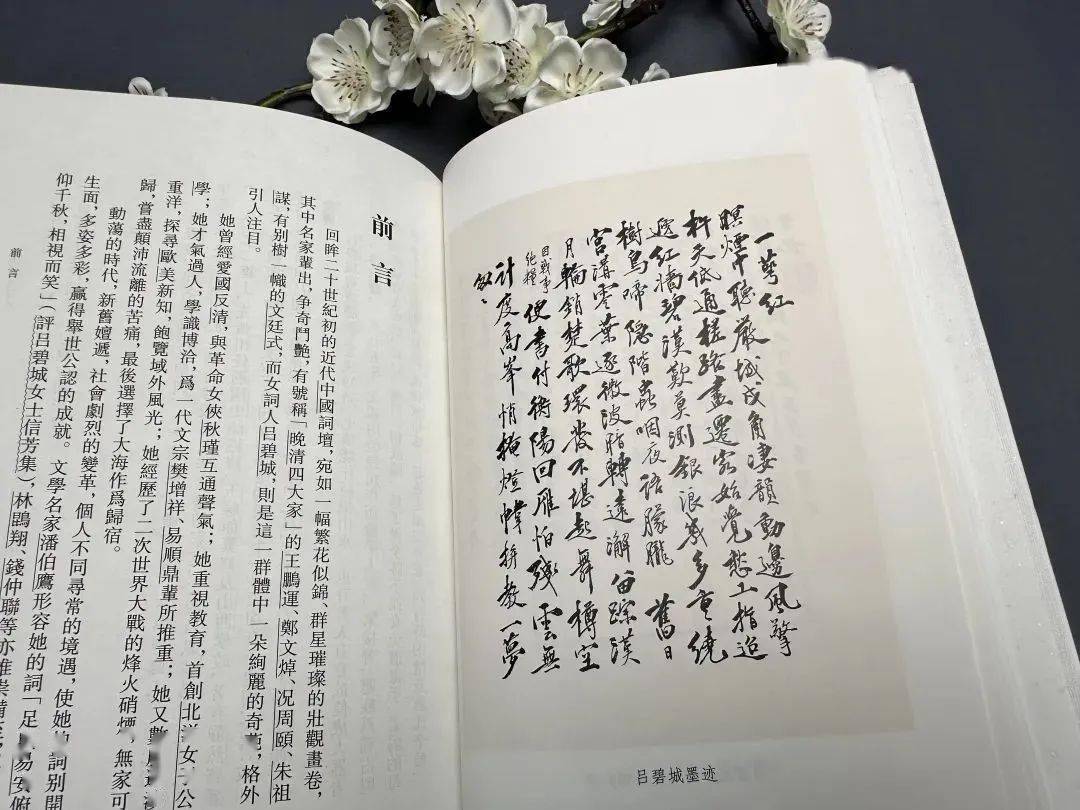 一萼紅
暝煙中聽嚴城戍角淒韻動邊風擎
杵天低通槎路盡還家始覺愁工指迢
遞紅牆碧漢歎莫測銀浪幾多重繞
樹烏啼隱階蟲咽夜話朦朧 舊日
宮溝零葉逐微波暗轉遠澥留踪漢
月輪銷楚歌環發不堪起舞樽空
因戰事
絕糧
便書付衡陽回雁怕殘雲無
計度高峯悄掩燈幃拚教一夢
匆匆
呂碧城墨迹
前言
回眸二十世紀初的近代中國詞壇，宛如一幅繁花似錦、群星璀璨的壯觀畫卷，
其中名家輩出，争奇鬥艷，有號稱「晚清四大家」的王鵬運、鄭文焯、况周頤、朱祖
謀，有别樹一幟的文廷式，而女詞人呂碧城，則是這一群體中一朵絢麗的奇葩，格外
引人注目。
她曾經愛國反清，與革命女俠秋瑾互通聲氣；她重視教育，首創北洋女子公
學；她才氣過人，學識博洽，爲一代文宗樊增祥、易順鼎輩所推重；她又數度
重洋，探尋歐美新知，飽覽域外風光；她經歷了二次世界大戰的烽火硝煙，無家可
歸，嘗盡顛沛流離的苦痛，最後選擇了大海作爲歸宿。
動蕩的時代，新舊嬗遞，社會劇烈的變革，個人不同尋常的境遇，使她的詞别開
生面，多姿多彩，贏得舉世公認的成就。文學名家潘伯鷹形容她的詞「足與易安俯
仰千秋，相視而笑」（評呂碧城女士信芳集），林鵾翔、錢仲聯等亦推崇備至
前言